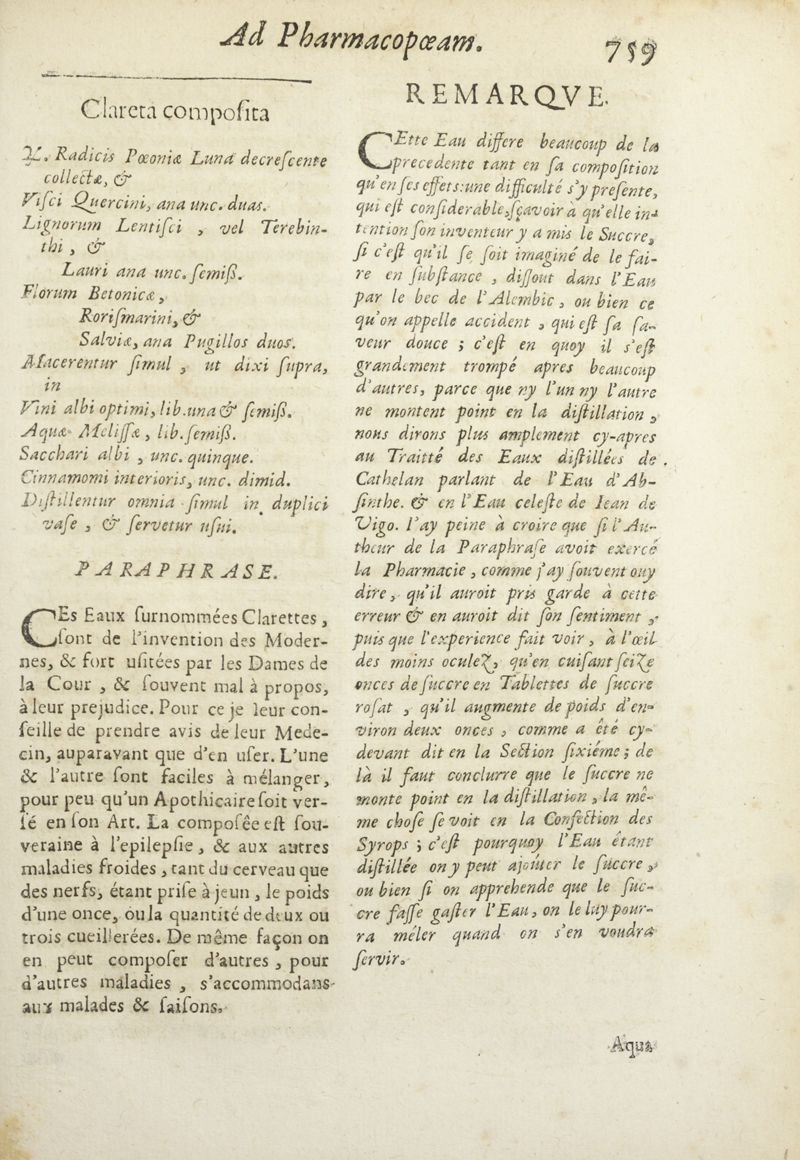 Ad Pharmacopœam.
759
Clareta compoſita
♃. Radicis Pœoniæ Lunâ decreſcente
collectæ, &
Viſci Quercini, ana unc. duas.
Lignorum Lentiſci , vel Terebin-
thi , &
Lauri ana unc. ſemiß.
Florum Betonicæ,
Roriſmarini, &
Salviæ, ana Pugillos duos.
Macerentur ſimul , ut dixi ſupra,
in
Vini albi optimi, lib.una & ſemiß.
Aquæ Meliſſæ , lib.ſemiß.
Sacchari albi , unc. quinque.
Cinnamomi interioris, unc. dimid.
Diſtillentur omnia ſimul in duplici
vaſe , & ſervetur uſui.
PARAPHRASE.
CEs Eaux ſurnommées Clarettes ,
ſont de l'invention des Moder-
nes, & fort uſitées par les Dames de
la Cour , & ſouvent mal à propos,
à leur prejudice. Pour ce je leur con-
ſeille de prendre avis de leur Mede-
cin, auparavant que d'en uſer. L'une
& l'autre ſont faciles à mélanger,
pour peu qu'un Apothicaire ſoit ver-
ſé en ſon Art. La compoſée eſt ſou-
veraine à l'epilepſie , & aux autres
maladies froides , tant du cerveau que
des nerfs, étant priſe à jeun , le poids
d'une once, ou la quantité de deux ou
trois cueillerées. De même façon on
en peut compoſer d'autres , pour
d'autres maladies , s'accommodans
aux malades & ſaiſons.
REMARQVE.
CEtte Eau differe beaucoup de la
precedente tant en ſa compoſition
qu'en ſes effets: une difficulté s'y preſente,
qui eſt conſiderable, ſçavoir à qu'elle in-
tention ſon inventeur y a mis le Succre,
ſi c'eſt qu'il ſe ſoit imaginé de le fai-
re en ſubſtance , diſſout dans l'Eau
par le bec de l'Alembic , ou bien ce
qu'on appelle accident , qui eſt ſa ſa-
veur douce ; c'eſt en quoy il s'eſt
grandement trompé apres beaucoup
d'autres, parce que ny l'un ny l'autre
ne montent point en la diſtillation ,
nous dirons plus amplement cy-apres
au Traitté des Eaux diſtillées de
Cathelan parlant de l'Eau d'Ab-
ſinthe. & en l'Eau celeſte de Iean de
Vigo. I'ay peine à croire que ſi l'Au-
theur de la Paraphraſe avoit exercé
la Pharmacie , comme j'ay ſouvent ouy
dire , qu'il auroit pris garde à cette
erreur & en auroit dit ſon ſentiment ,
puis que l'experience fait voir , à l'œil
des moins oculeZ, qu'en cuiſant ſeiZe
onces de ſuccre en Tablettes de ſuccre
roſat , qu'il augmente de poids d'en-
viron deux onces , comme a été cy-
devant dit en la Section ſixiéme ; de
là il faut conclurre que le ſuccre ne
monte point en la diſtillation , la mê-
me choſe ſe voit en la Confection des
Syrops ; c'eſt pourquoy l'Eau étant
diſtillée on y peut ajoûter le ſuccre ,
ou bien ſi on apprehende que le ſuc-
cre faſſe gaſter l'Eau, on le luy pour-
ra méler quand on s'en voudra
ſervir.
Aqua